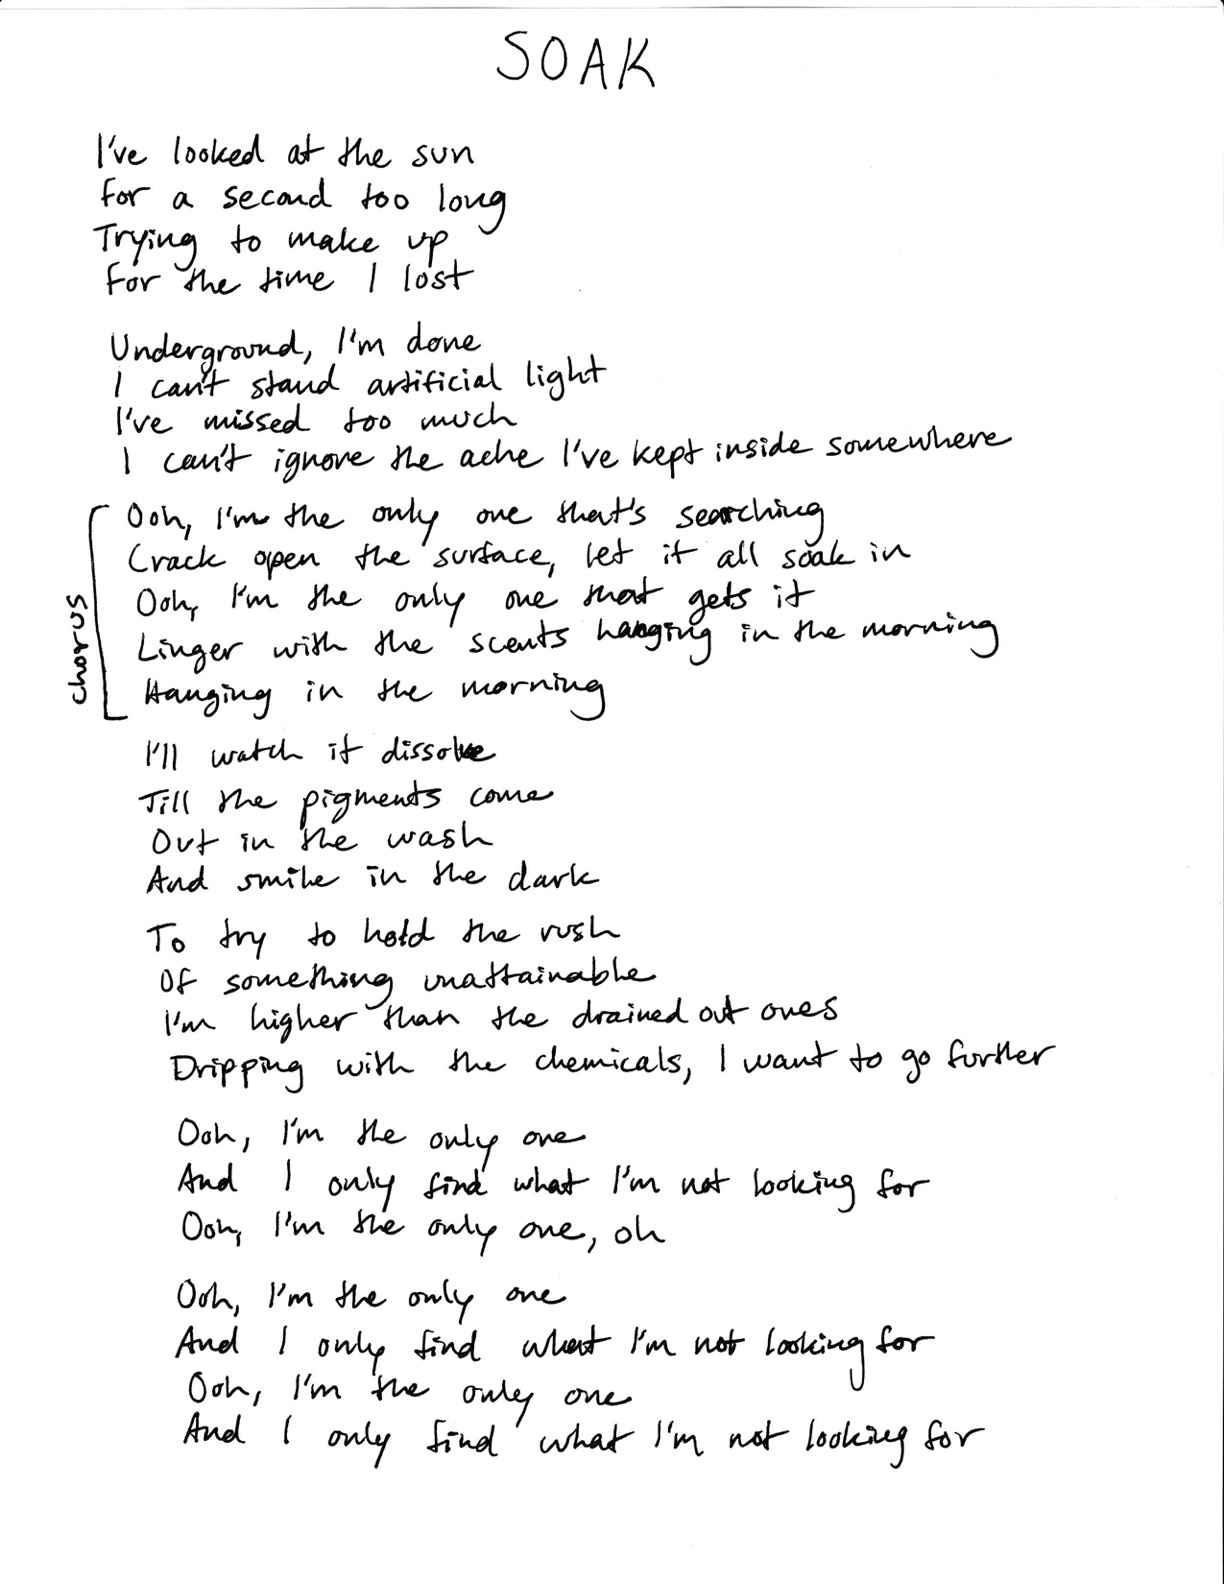 SOAK
I've looked at the sun
For a second too long
Trying to make up
For the time I lost
Underground, I'm done
I can't stand artificial light
I've missed too much
I can't ignore the ache I've kept inside somewhere
chorus
Ooh, I'm the only one that's searching
Crack open the surface, let it all soak in
Ooh, I'm the only one that gets it
Linger with the scents hanging in the morning
Hanging in the morning
I'll watch it dissolve
Till the pigments come
Out in the wash
And smile in the dark
To try to hold the rush
Of something unattainable
I'm higher than the drained out ones
Dripping with the chemicals, I want to go further
Ooh, I'm the only one
And I only find what I'm not looking for
Ooh, I'm the only one, oh
Ooh, I'm the only one
And I only find what I'm not looking for
Ooh, I'm the only one
And I only find what I'm not looking for